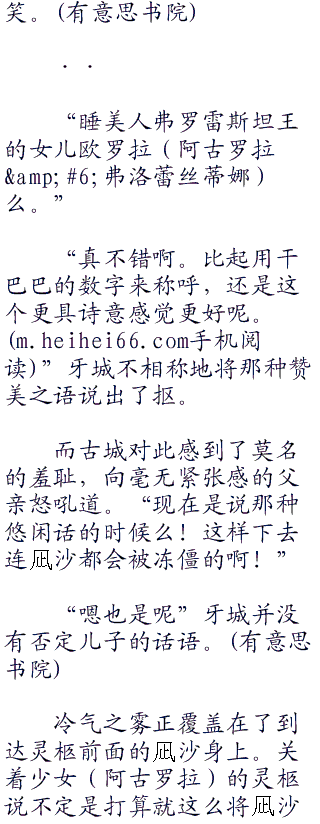 笑。(有意思书院)
· ·
“睡美人弗罗雷斯坦王
的女儿欧罗拉（阿古罗拉
&amp;#6;弗洛蕾丝蒂娜）
么。”
“真不错啊。比起用干
巴巴的数字来称呼，还是这
个更具诗意感觉更好呢。
(m.heihei66.com手机阅
读)”牙城不相称地将那种赞
美之语说出了抠。
而古城对此感到了莫名
的羞耻，向毫无紧张感的父
亲怒吼道。“现在是说那种
悠闲话的时候么！这样下去
连凪沙都会被冻僵的啊！”
“嗯也是呢”牙城并没
有否定儿子的话语。(有意思
书院)
冷气之雾正覆盖在了到
达灵柩前面的凪沙身上。关
着少女（阿古罗拉）的灵柩
说不定是打算就这么将凪沙